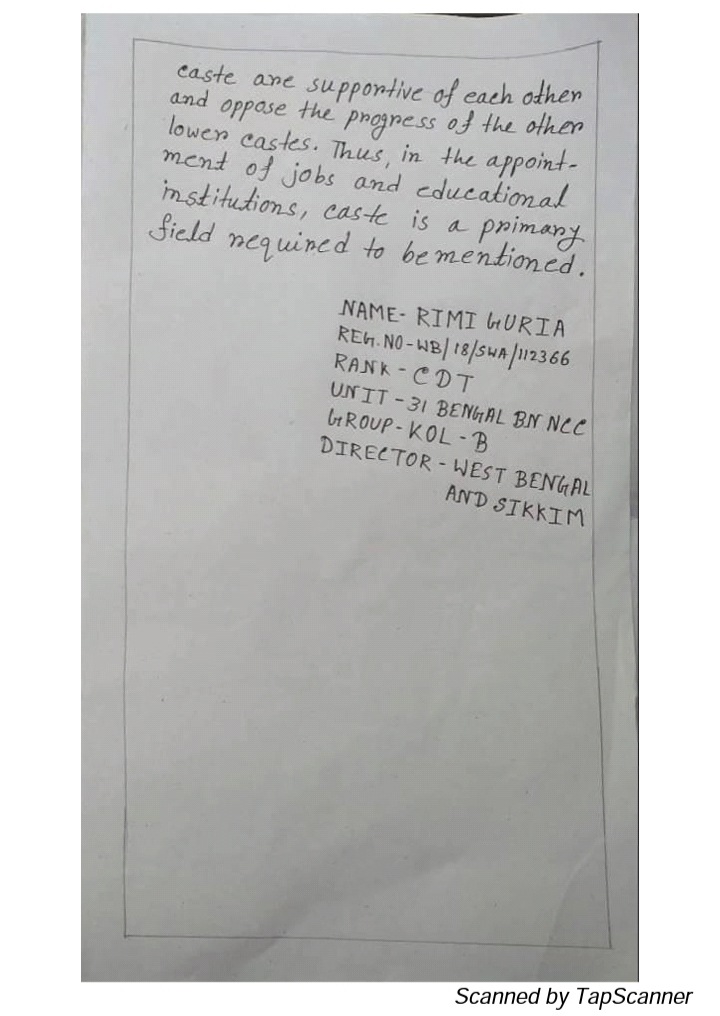 caste are supportive of each other
and oppose the progress of the other
lower castes. Thus, in the appoint-
ment of jobs and educational
institutions, caste is a primary
field required to be mentioned.
NAME- RIMI GURIA
REG. NO-WB/18/SWA/112366
RANK - CDT
UNIT - 31 BENGAL BN NCC
GROUP- KOL - B
DIRECTOR - WEST BENGAL
AND SIKKIM
Scanned by TapScanner